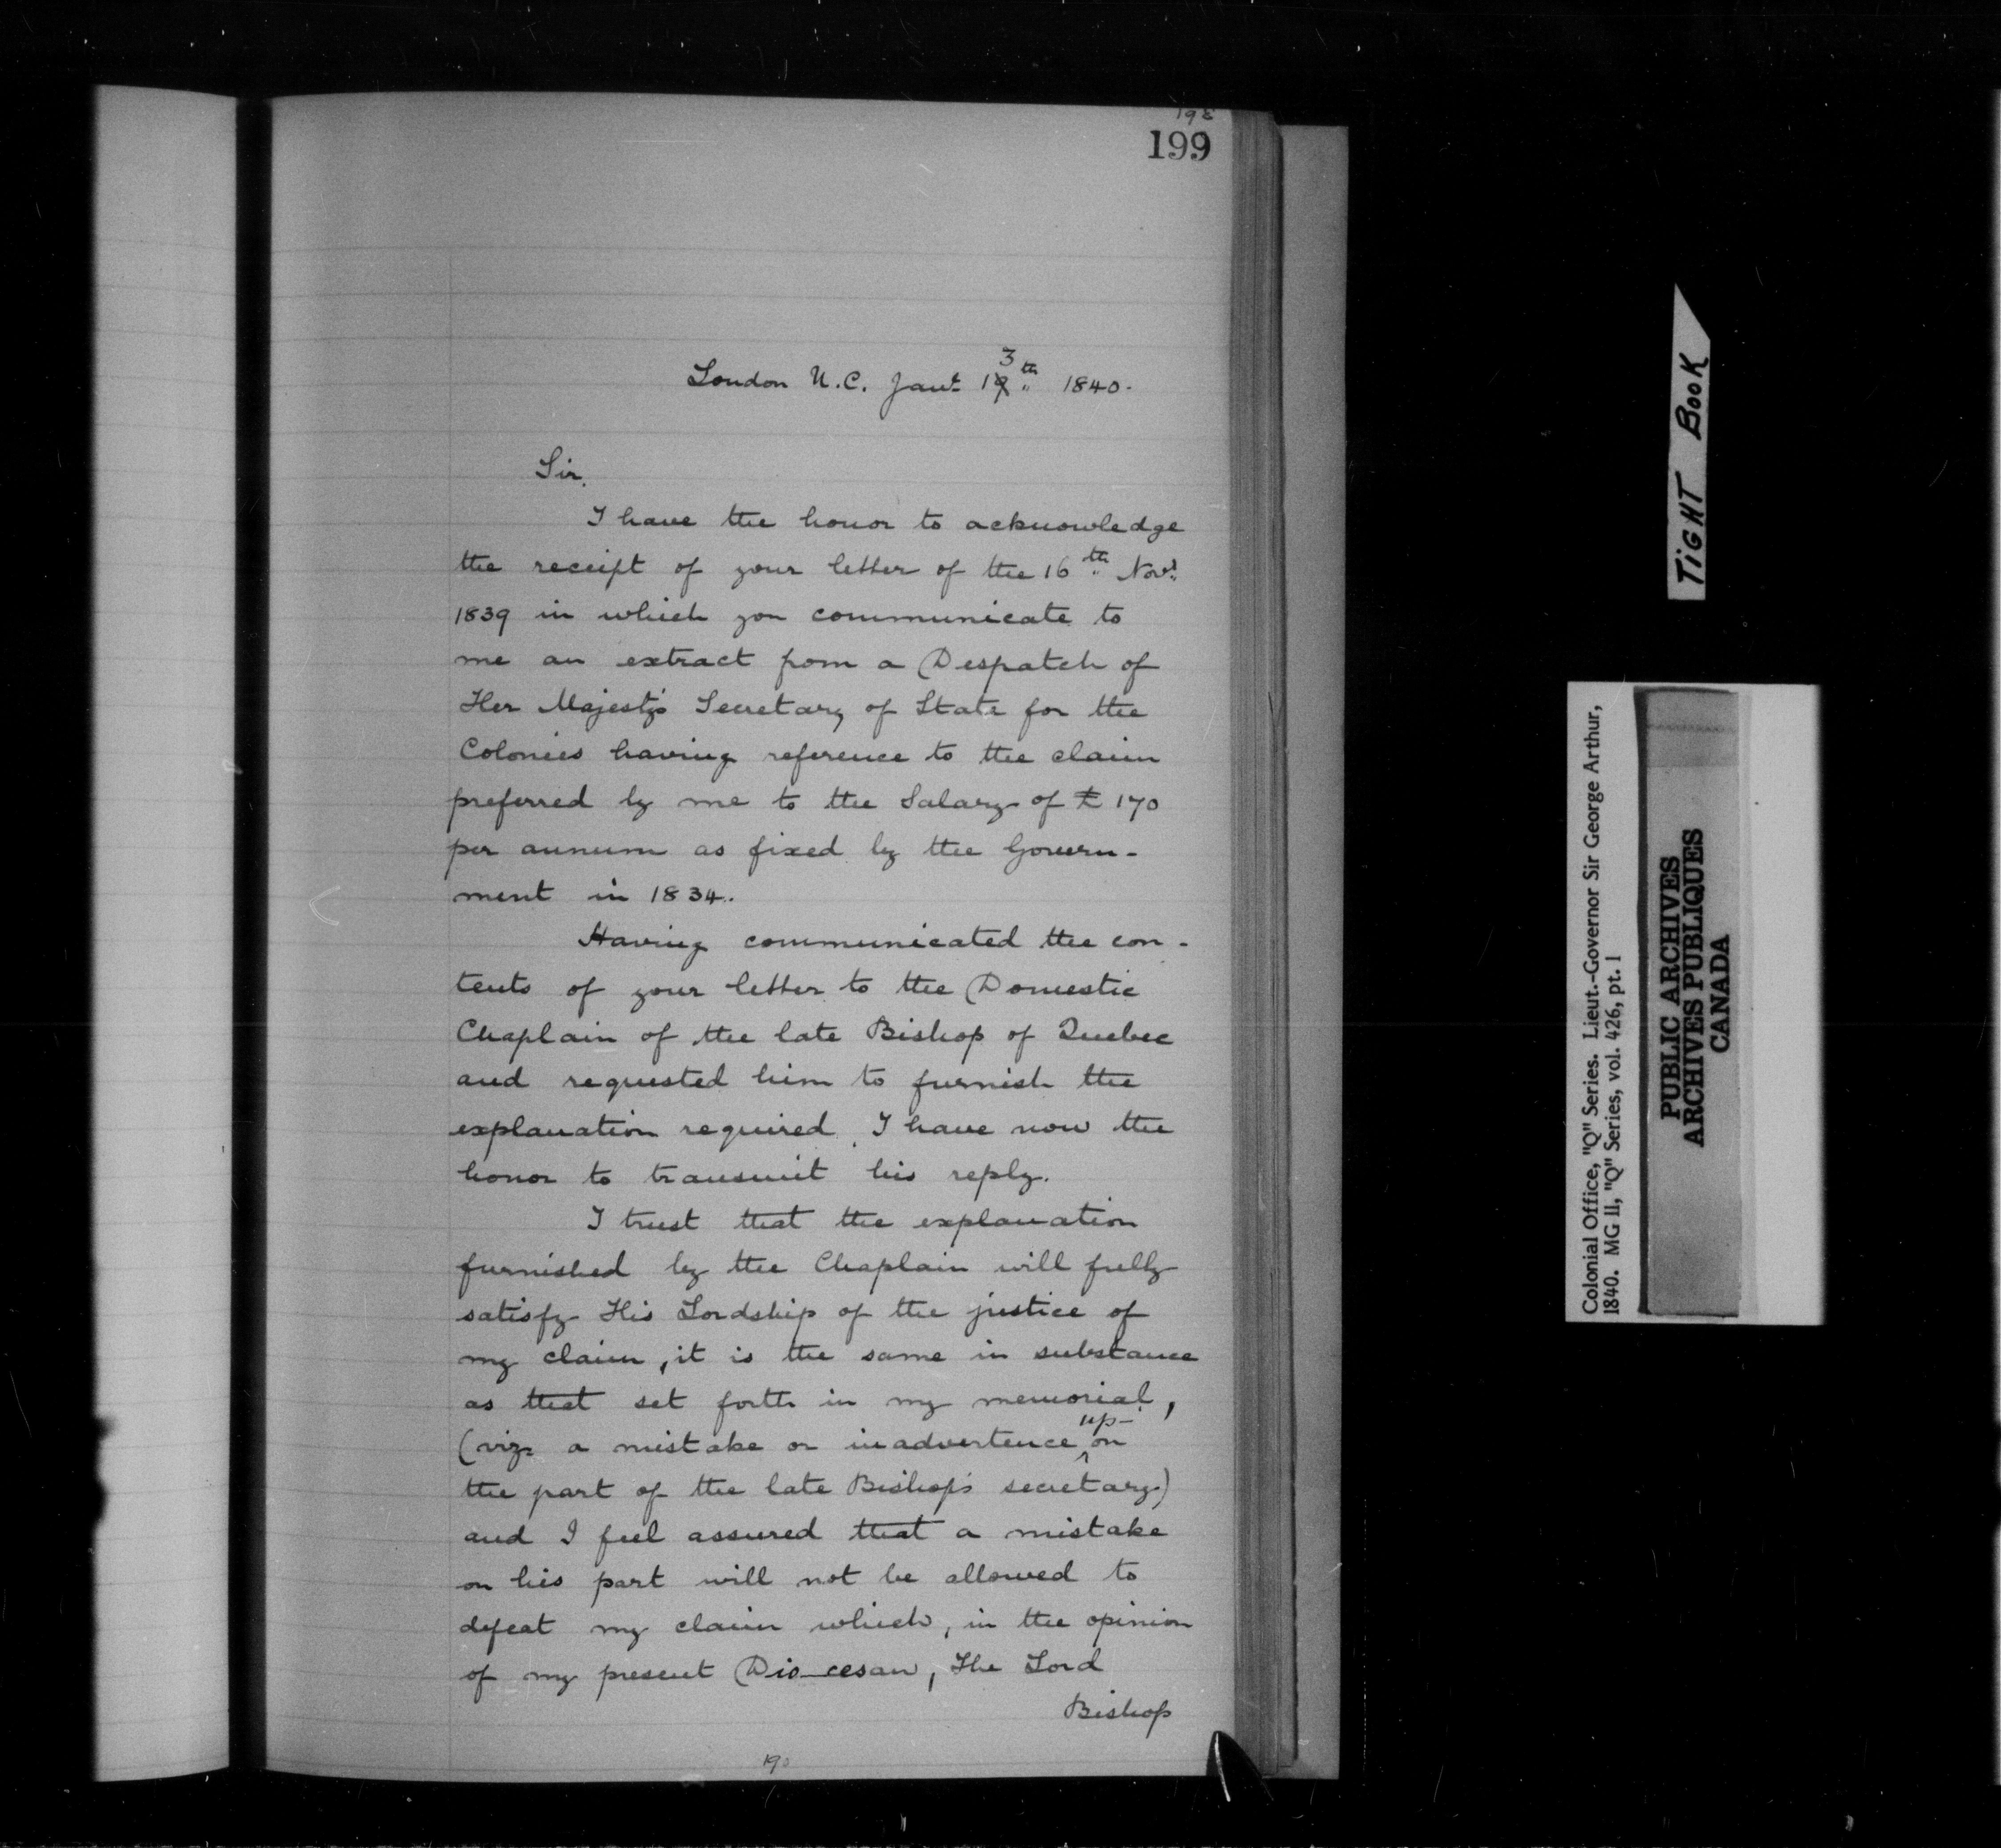 198
199
London U.C. Jany 13th 1840.
Sir,
I have the honor to acknowledge
the receipt of your letter of the 16th Novr
1839 in which you communicate to
me an extract from a Despatch of
Her Majesty's Secretary of State for the
Colonies having reference to the claim
preferred by me to the Salary of £170
per annum as fixed by the Govern-
ment in 1834.
Having communicated the con-
tents of your letter to the Domestic
Chaplain of the late Bishop of Quebec
and requested him to furnish the
explanation required, I have now the
honor to transmit his reply.
I trust that the explanation
furnished by the Chaplain will fully
satisfy His Lordship of the justice of
my claim, it is the same in substance
as that set forth in my memorial,
(viz. a mistake or inadvertence up-on
the part of the late Bishop's secretary)
and I feel assured that a mistake
on his part will not be allowed to
defeat my claim which, in the opinion
of my present Dio-cesan, The Lord
Bishop
TIGHT BOOK
Colonial Office, "Q" Series. Lieut.-Governor Sir George Arthur,
1840. MG 11, "Q" Series, vol. 426, pt. 1
PUBLIC ARCHIVES
ARCHIVES PUBLIQUES
CANADA